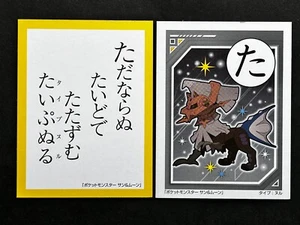 ただならぬ
たいどで
たたずむ
たいぷぬる
タイプヌル
「ポケットモンスター サン&ムーン」
た
「ポケットモンスター サン&ムーン」
タイプ：ヌル